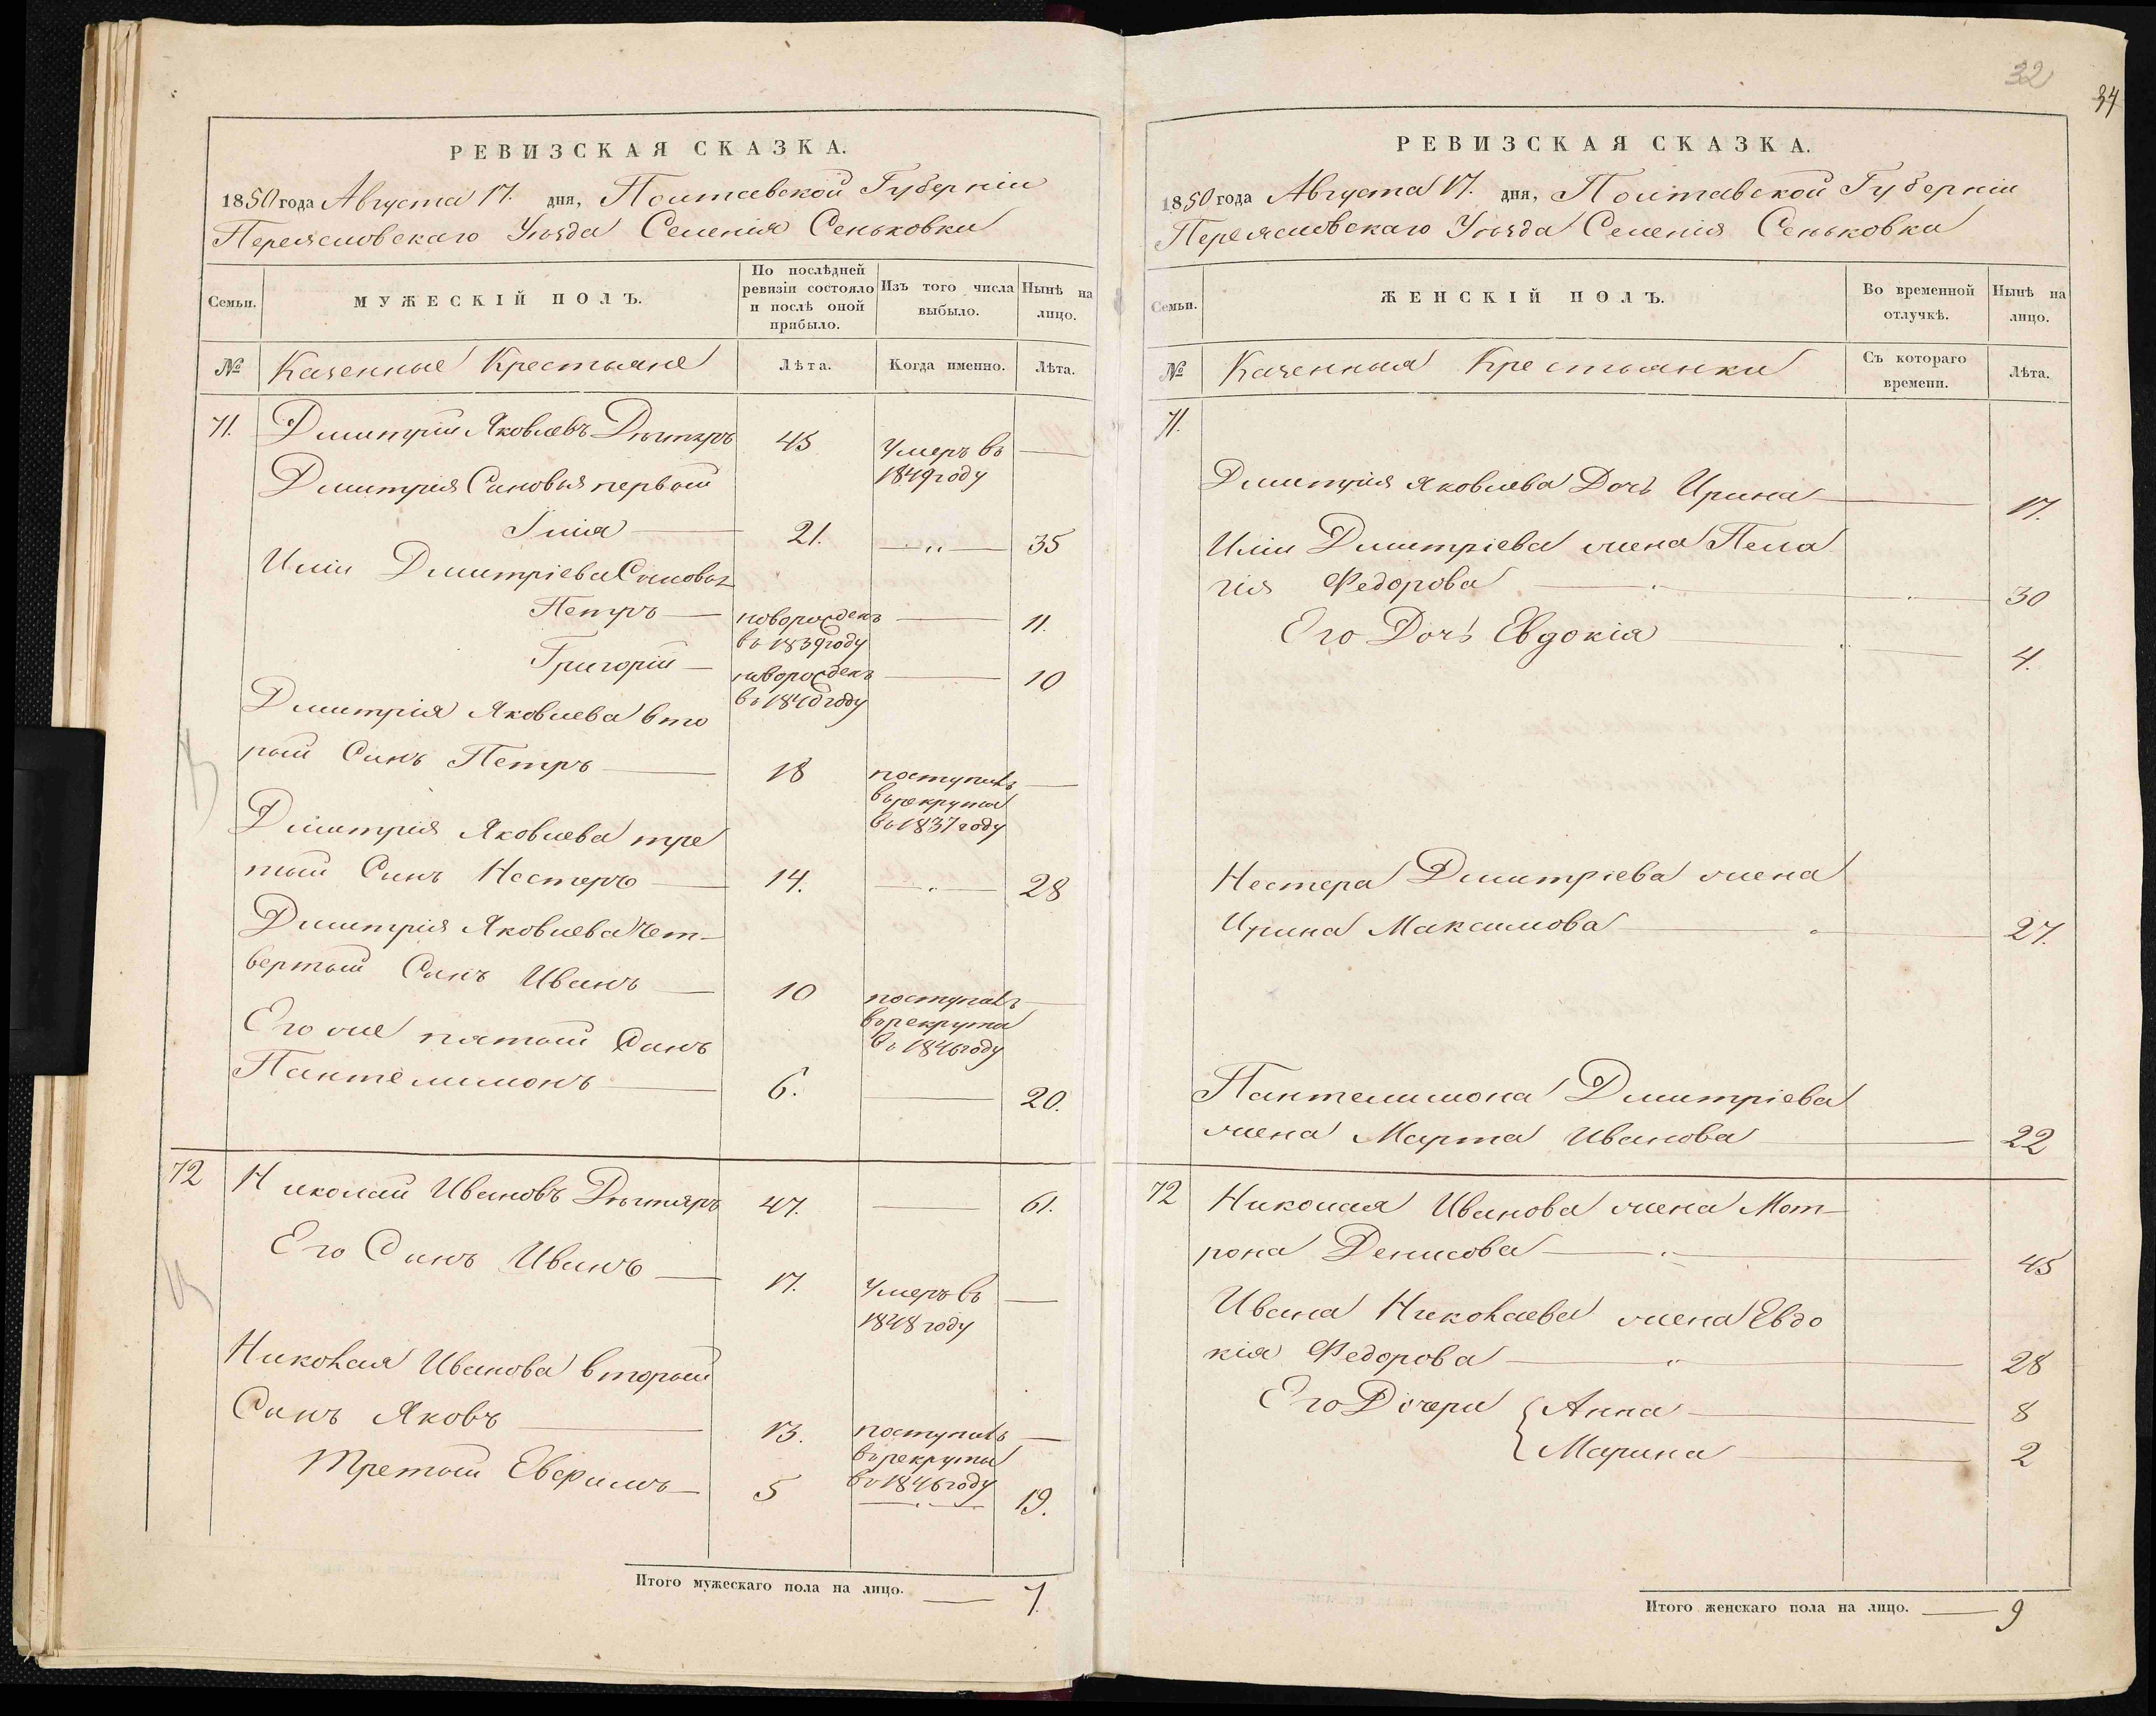 32
34
РЕВИЗСКАЯ СКАЗКА.
1850 года Августа 17. дня, Полтавской Губерніи
Переясловскаго Уѣзда Селенія Сеньковки
Семьи. МУЖЕСКІЙ ПОЛЪ. По послѣдней ревизіи состояло и послѣ оной прибыло. Изъ того числа выбыло. Нынѣ на лицо.
№ Казенные Крестьяне Лѣта. Когда именно. Лѣта.
71. Дмитрій Яковлевъ Дѣгтяръ 45 Умеръ въ
1849 году
Дмитрія Синовья первый
Илія 21. 35
Иліи Дмитріева Синовья
Петръ новорожденъ 11.
въ 1839 году
Григорій новорожденъ 10
въ 1840 году
Дмитрія Яковлева вто
рый Синъ Петръ 18 поступилъ
въ рекрута
въ 1837 году
Дмитрія Яковлева тре
тый Синъ Нестеръ 14. 28
Дмитрія Яковлева Чет-
вертый Синъ Иванъ 10 поступилъ
въ рекрута
въ 1846 году
Его же пятый Синъ
Пантелимонъ 6. 20.
72 Николай Ивановъ Дѣгтяръ 47. 61.
Его Синъ Иванъ 17. Умеръ въ
1848 году
Николая Иванова вторый
Синъ Яковъ 13. поступилъ
въ рекруты
въ 1846 году
Третый Евфимъ 5 19.
Итого мужескаго пола на лицо. 7.
РЕВИЗСКАЯ СКАЗКА.
1850 года Августа 17. дня, Полтавской Губерніи
Переясловскаго Уѣзда Селенія Сеньковки
Семьи. ЖЕНСКІЙ ПОЛЪ. Во временной отлучкѣ. Нынѣ на лицо.
№ Казенныя Крестьянки Съ котораго времени. Лѣта.
71.
Дмитрія Яковлева Дочь Ирина 17.
Иліи Дмитріева жена Пела
гія Федорова 30
Его Дочь Евдокія 4.
Нестера Дмитріева жена
Ирина Максимова 27.
Пантелимона Дмитріева
жена Марта Иванова 22
72 Николая Иванова жена Мот-
рона Денисова 45
Ивана Николаева жена Евдо
кія Федорова 28
Его Дочери { Анна 8
Марина 2
Итого женскаго пола на лицо. 9